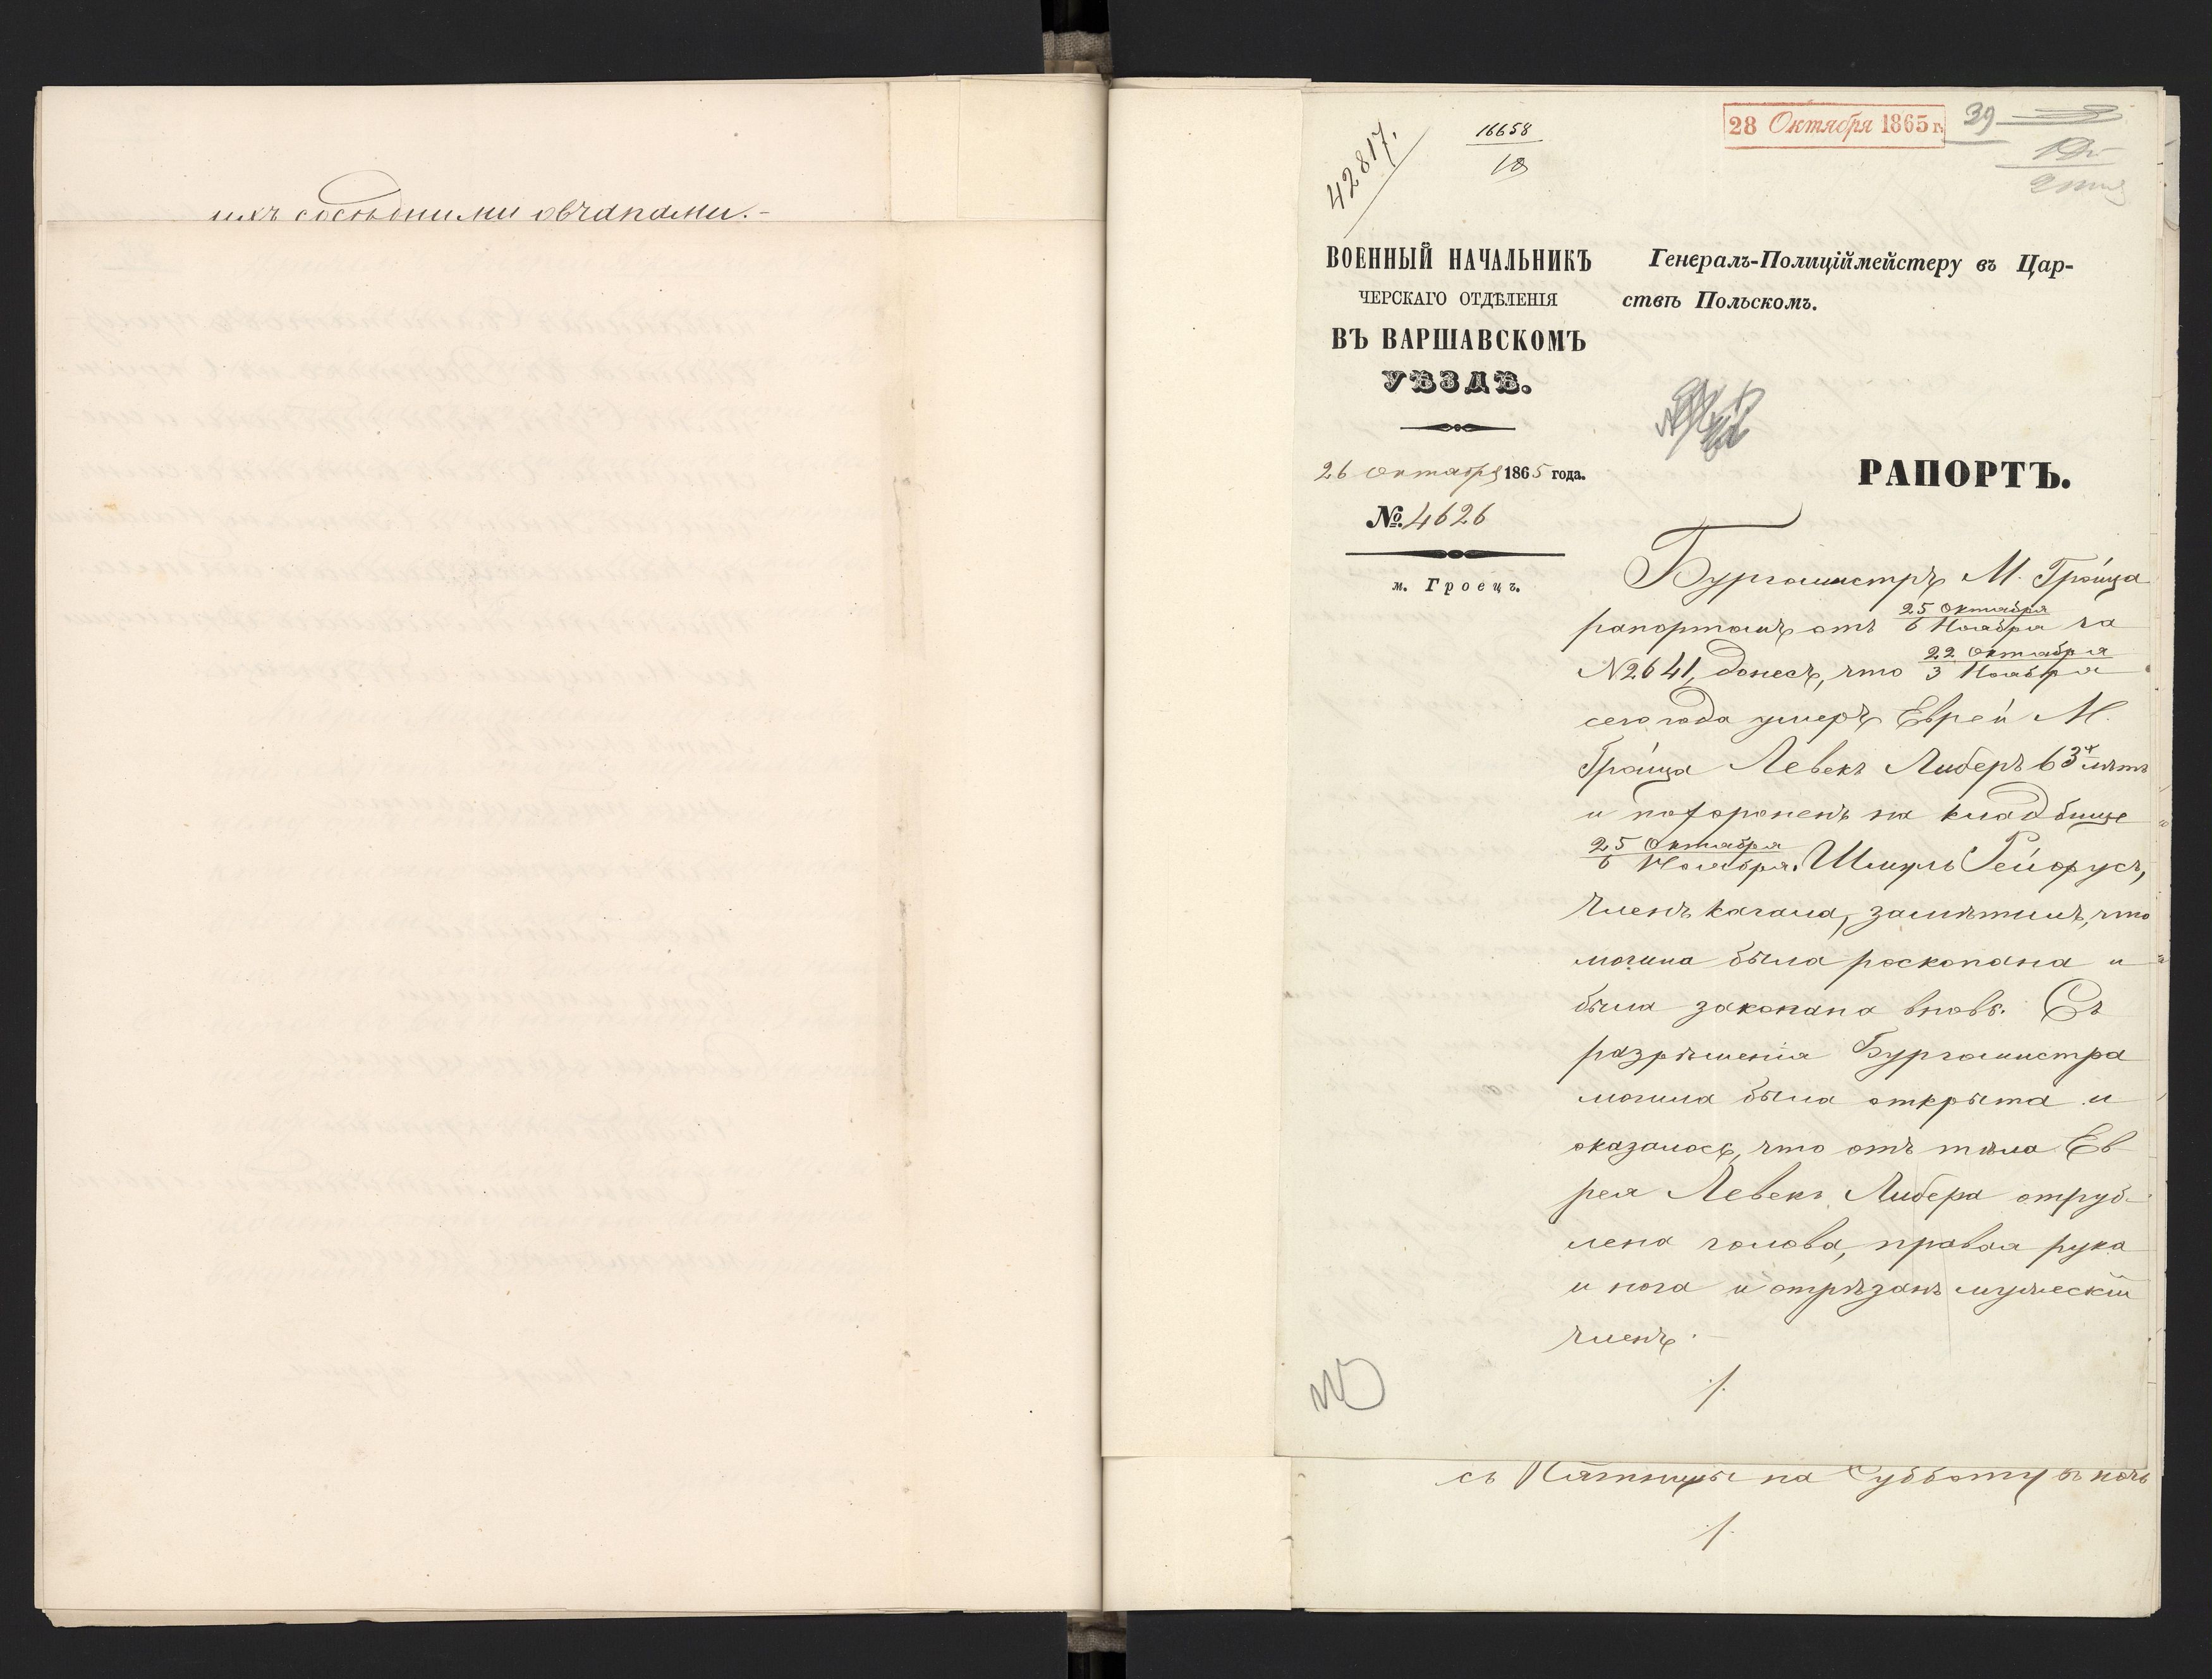 ихъ сосѣдними овчарами.-
42817.
16658
18
28 Октября 1865 г.
39
ВОЕННЫЙ НАЧАЛЬНИКЪ
ЧЕРСКАГО ОТДѢЛЕНІЯ
ВЪ ВАРШАВСКОМЪ
УѢЗДѢ.
26 Октября 1865 года.
№ 4626
м. Гроецъ.
Генералъ-Полиціймейстеру въ Цар-
ствѣ Польскомъ.
РАПОРТЪ.
Бургомистръ М. Гройца
рапортомъ отъ 25 Октября / 6 Ноября за
N 2641, донесъ, что 22 Октября / 3 Ноября
сего года умеръ Еврей М.
Гройца Левекъ Либеръ 63х лѣтъ
и похороненъ на кладбище
25 Октября / 6 Ноября. Шмуль
членъ кагала, замѣтилъ, что
могила была роскопана и
была закопана вновь. Съ
разрѣшенія Бургомистра
могила была открыта и
оказалось, что отъ тѣла Ев
рея Левекъ Либера отруб-
лена голова, правая рука
и нога и отрѣзанъ мужескій
членъ.-
./.
съ Пятницы на Субботу въ ночь
./.